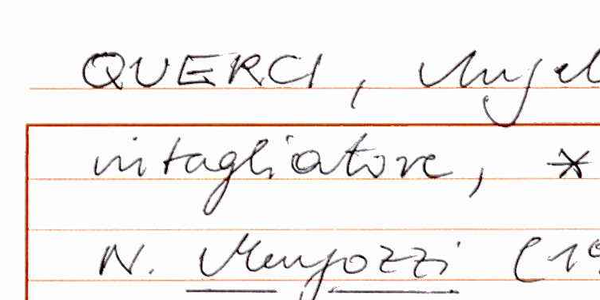 QUERCI, Angel
intagliatore, *
N. Mengozzi (19